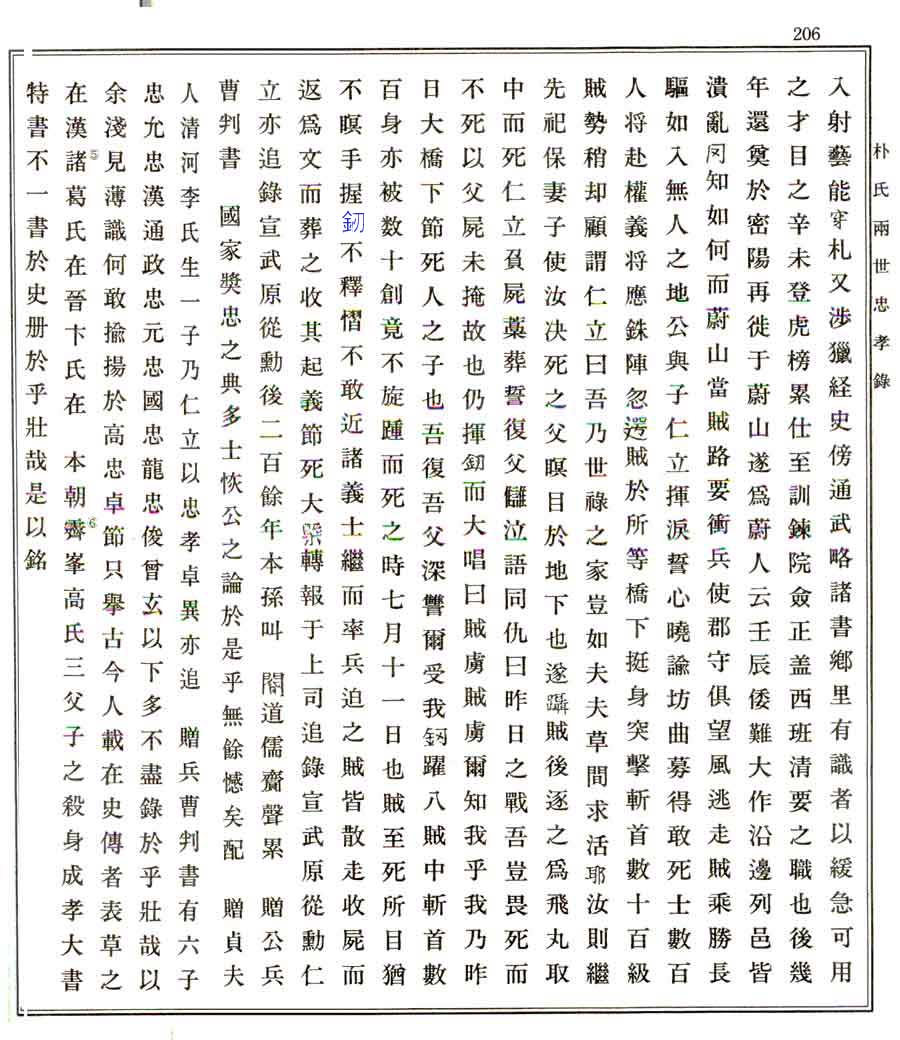 206
朴氏兩世忠孝錄
入射藝能穿札又涉獵経史傍通武略諸書鄕里有識者以緩急可用
之才目之辛未登虎榜累仕至訓鍊院僉正盖西班清要之職也後幾
年還奠於密陽再徙于蔚山遂爲蔚人云壬辰倭難大作沿邊列邑皆
潰亂罔知如何而蔚山當賊路要衝兵使郡守俱望風逃走賊乘勝長
驅如入無人之地公與子仁立揮淚誓心曉諭坊曲募得敢死士數百
人将赴權義将應銖陣忽遌賊於所等橋下挺身突擊斬首數十百級
賊勢稍却顧謂仁立曰吾乃世祿之家豈如夫夫草間求活耶汝則繼
先祀保妻子使汝决死之父暝目於地下也遂躡賊後逐之爲飛丸取
中而死仁立負屍藁葬誓復父讎泣語同仇曰昨日之戰吾豈畏死而
不死以父屍未掩故也仍揮釰而大唱曰賊虜賊虜爾知我乎我乃昨
日大橋下節死人之子也吾復吾父深讐爾受我釰躍八賊中斬首數
百身亦被数十創竟不旋踵而死之時七月十一日也賊至死所目猶
不暝手握釰不釋慴不敢近諸義士繼而率兵迫之賊皆散走收屍而
返爲文而葬之收其起義節死大槩轉報于上司追錄宣武原從勳仁
立亦追錄宣武原從勳後二百餘年本孫叫 閤道儒齎聲累 贈公兵
曹判書 國家奬忠之典多士恢公之論於是乎無餘憾矣配 贈貞夫
人清河李氏生一子乃仁立以忠孝卓異亦追 贈兵曹判書有六子
忠允忠漢通政忠元忠國忠龍忠俊曾玄以下多不盡錄於乎壯哉以
余淺見薄識何敢揄揚於高忠卓節只擧古今人載在史傳者表草之
在漢諸5葛氏在晉卞氏在 本朝霽6峯高氏三父子之殺身成孝大書
特書不一書於史册於乎壯哉是以銘